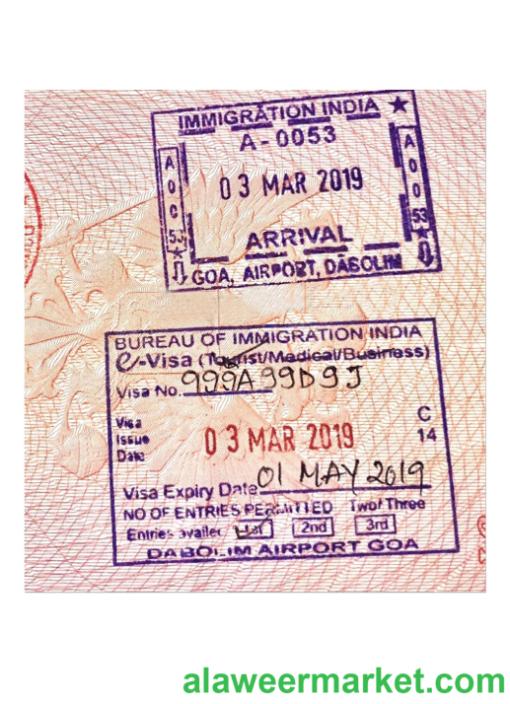 IMMIGRATION INDIA
A-0053
03 MAR 2019
ARRIVAL
GOA, AIRPORT, DABOLIM
BUREAU OF IMMIGRATION INDIA
e-Visa (Tourist/Medical/Business)
Visa No. 999A99D9J
Visa
Issue
Date
03 MAR 2019
C
14
Visa Expiry Date 01 MAY 2019
NO OF ENTRIES PERMITTED Two/ Three
Entries availed 1st 2nd 3rd
DABOLIM AIRPORT GOA
alaweermarket.com